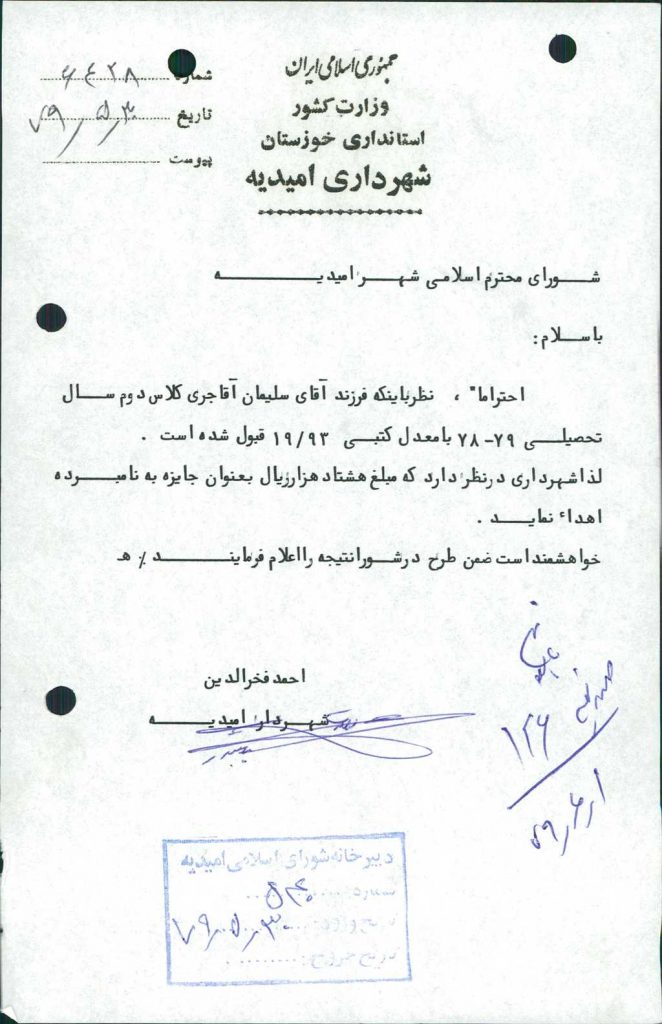 جمهوری اسلامی ایران
وزارت کشور
استانداری خوزستان
شهرداری امیدیه
شماره ۶۴۲۸
تاریخ ۷۹/۵/۳۰
پیوست
شورای محترم اسلامی شهر امیدیه
باسلام:
احتراما" ، نظرباینکه فرزند آقای سلیمان آقاجری کلاس دوم سال
تحصیلی ۷۹-۷۸ بامعدل کتبی ۱۹/۹۳ قبول شده است .
لذاشهرداری درنظر دارد که مبلغ هشتاد هزارریال بعنوان جایزه به نامبرده
اهداء نماید .
خواهشمنداست ضمن طرح درشورانتیجه رااعلام فرمایند ٪ هـ
احمد فخرالدین
شهردار امیدیه
۱۲۶
۷۹/۶/۱
دبیرخانه شورای اسلامی امیدیه
شماره:
تاریخ ورود: ۷۹/۵/۳۰
تاریخ خروج: